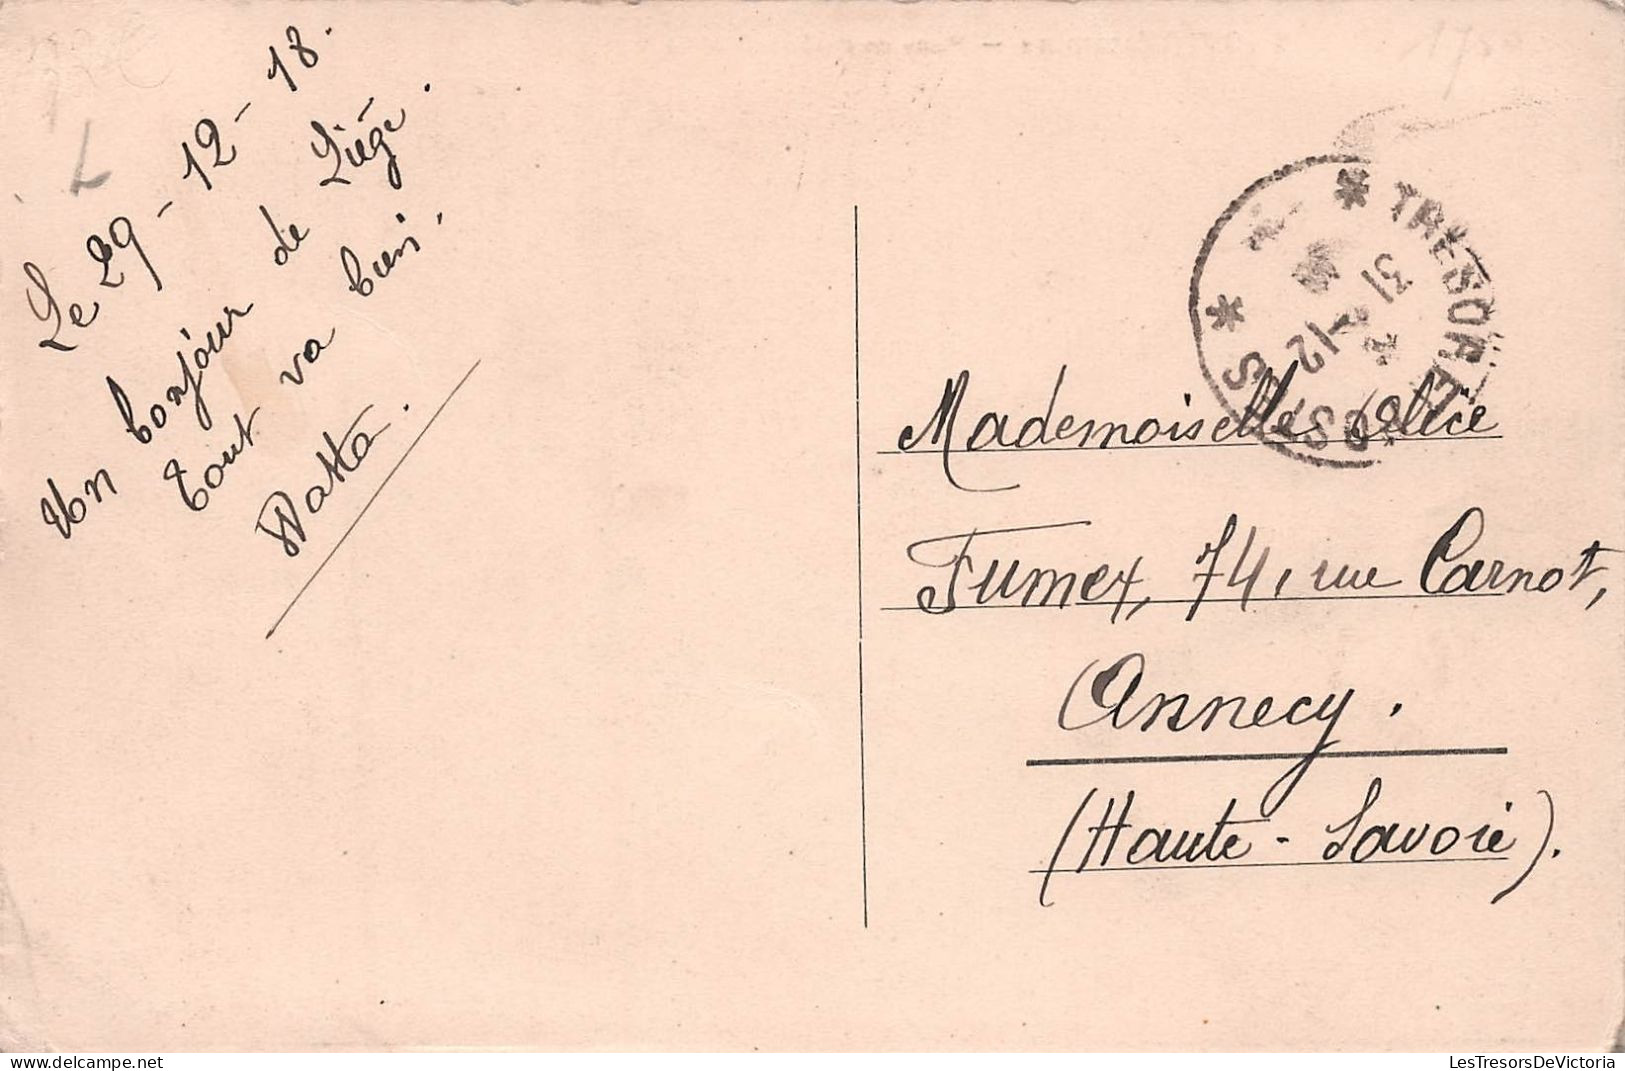 Le 29-12-18.
Un bonjour de Liége.
Tout va bien.
Mademoiselle Alice
Fumex, 74, rue Carnot,
Annecy.
(Haute-Savoie).
* TRESOR ET POSTES *
31
-12
LesTresorsDeVictoria